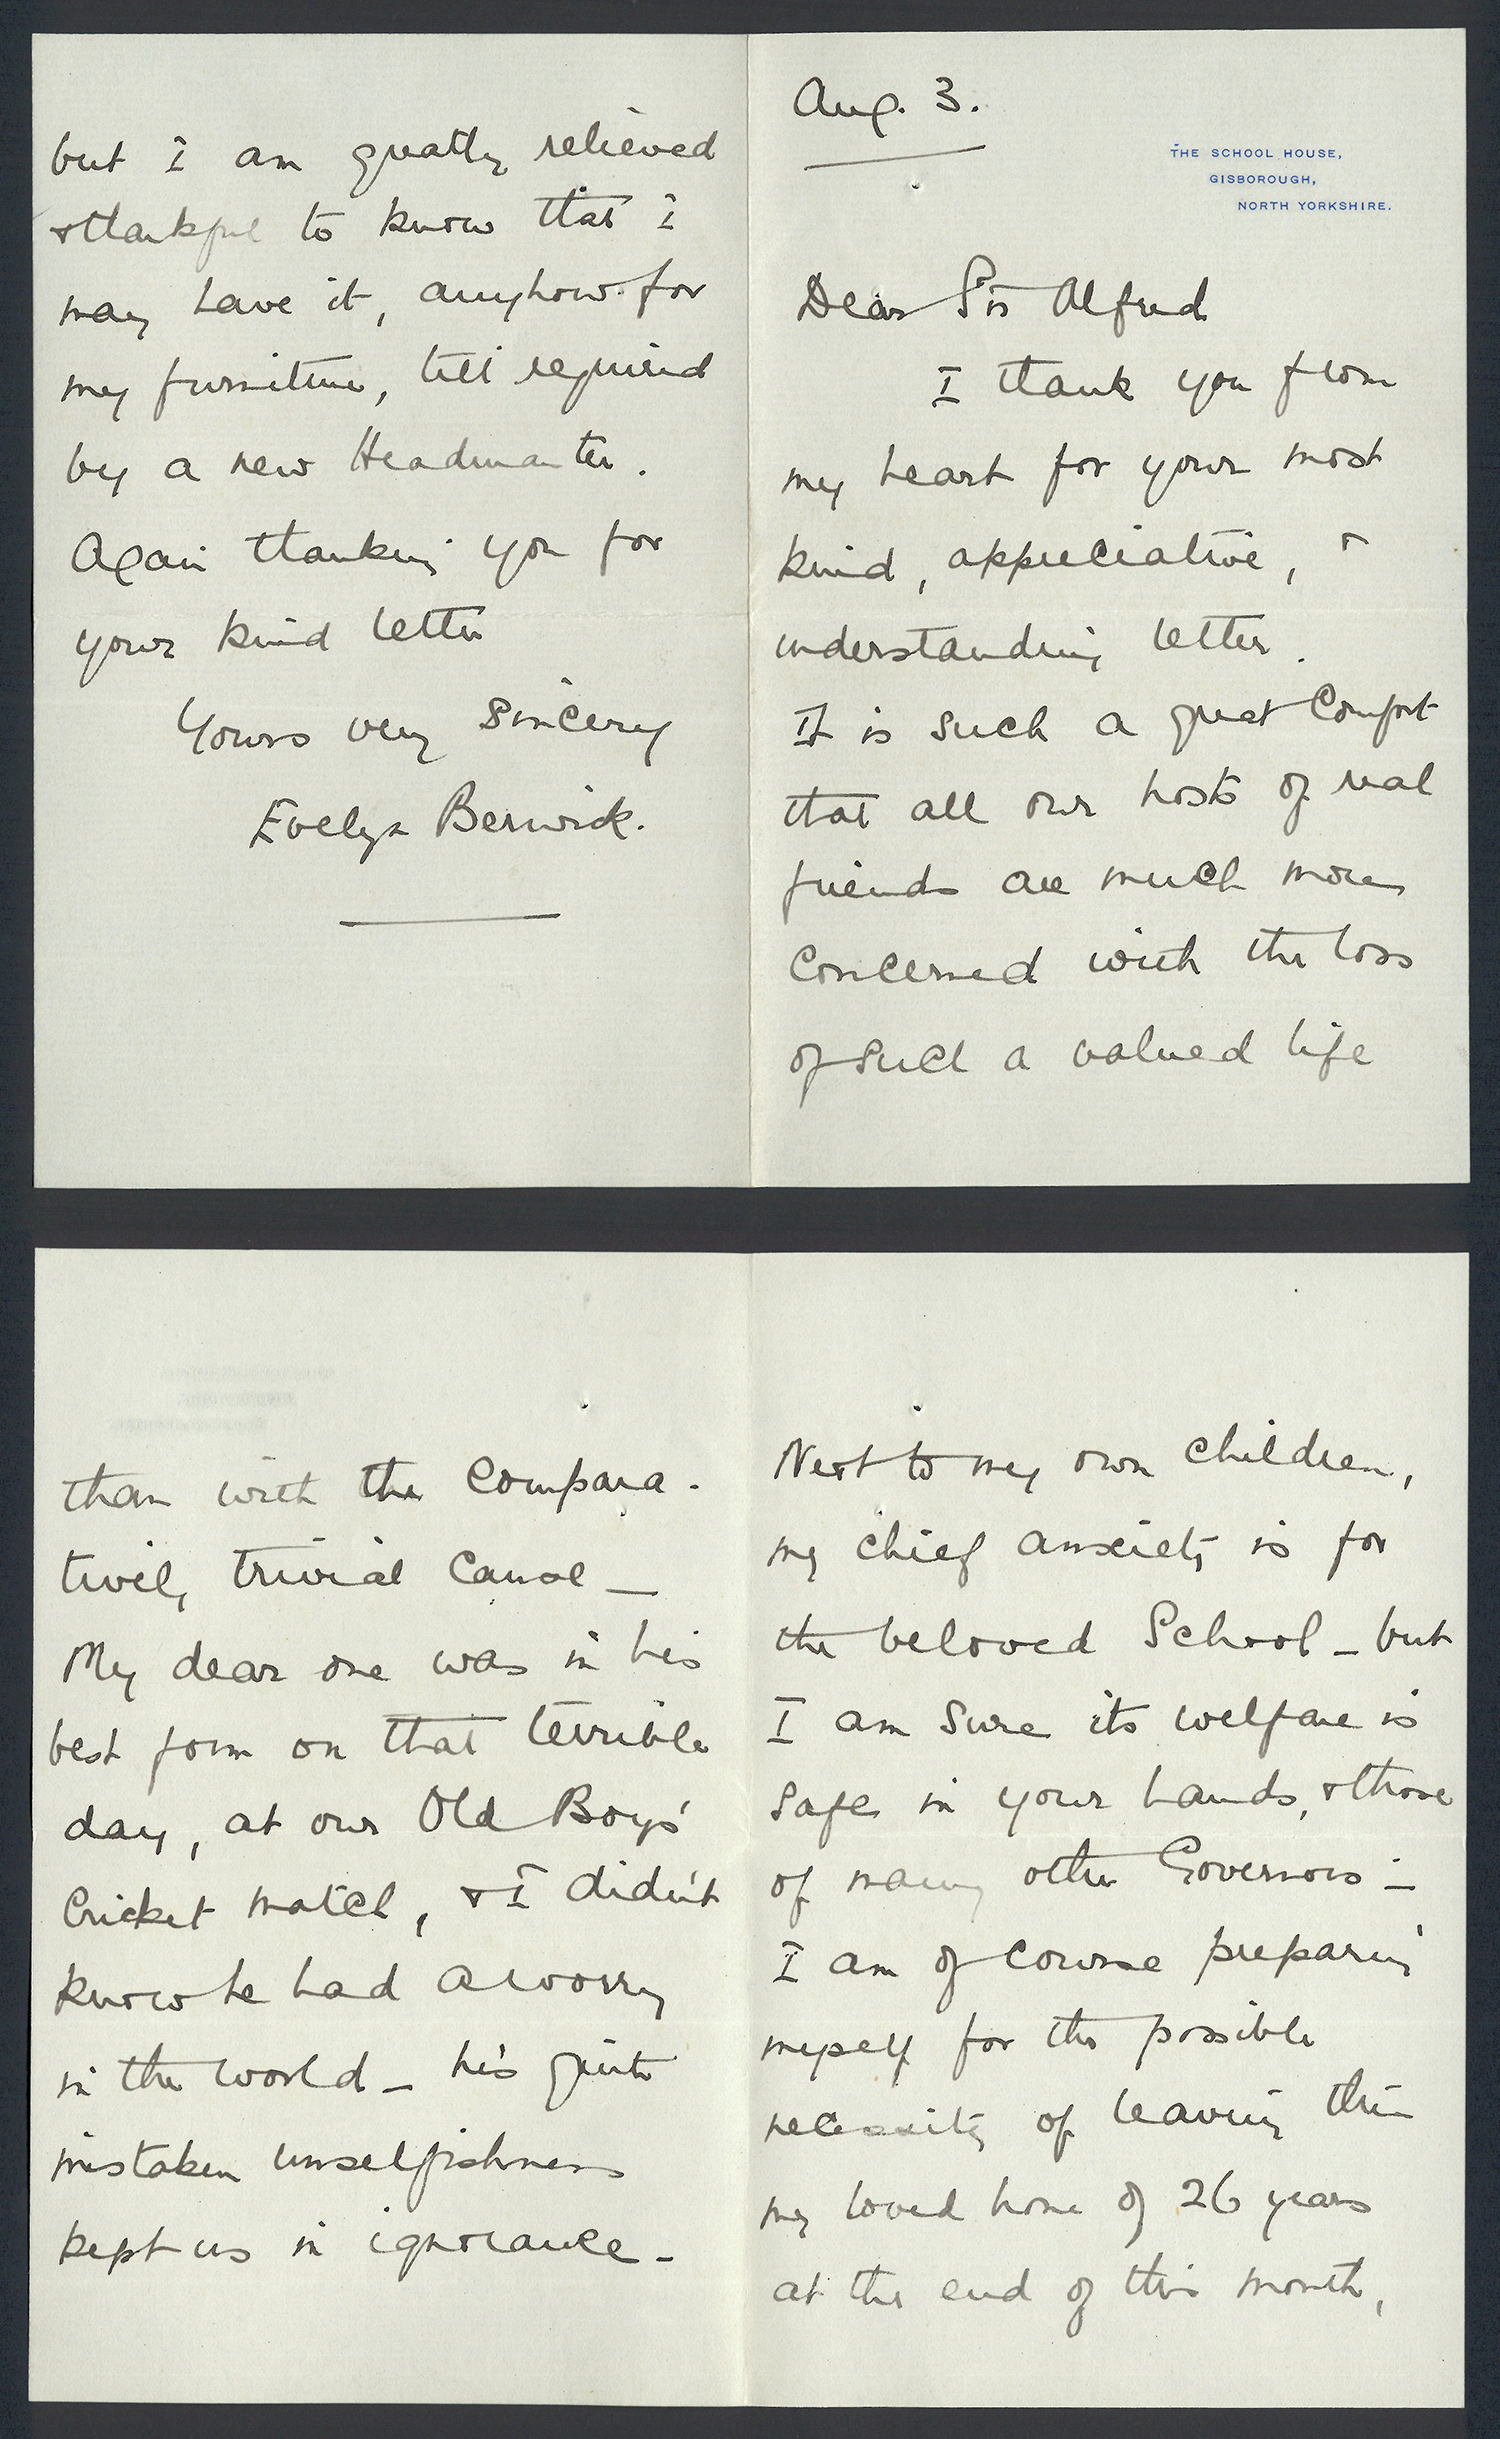 Aug. 3.
THE SCHOOL HOUSE,
GISBOROUGH,
NORTH YORKSHIRE.
Dear Sir Alfred
I thank you from
my heart for your most
kind, appreciative, &
understanding letter.
It is such a great comfort
that all our hosts of real
friends are much more
concerned with the loss
of such a valued life
than with the compara-
tively trivial cause —
My dear one was in his
best form on that terrible
day, at our Old Boys'
Cricket match, & I didn't
know he had a worry
in the world — his quite
mistaken unselfishness
kept us in ignorance —
Next to my own children,
my chief anxiety is for
the beloved School — but
I am sure its welfare is
safe in your hands, & those
of many other Governors —
I am of course preparing
myself for the possible
necessity of leaving this
my loved home of 26 years
at the end of this month,
but I am greatly relieved
& thankful to know that I
may have it, anyhow for
my furniture, till required
by a new Headmaster.
Again thanking you for
your kind letter
Yours very sincerely
Evelyn Berwick.